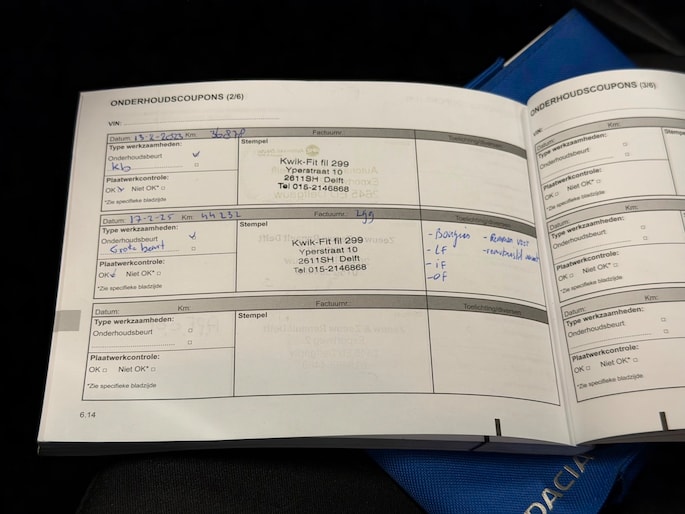 ONDERHOUDSCOUPONS (2/6)
VIN:
Datum: 13-2-2023 Km: 36878 Factuurnr.: Toelichting/diversen
Type werkzaamheden:
Onderhoudsbeurt
kb
Plaatwerkcontrole:
OK Niet OK*
*Zie specifieke bladzijde
Stempel
Kwik-Fit fil 299
Yperstraat 10
2611SH Delft
Tel 015-2146868
Datum: 17-2-25 Km: 44232 Factuurnr.: Toelichting/diversen
Type werkzaamheden:
Onderhoudsbeurt
Grote beurt
Plaatwerkcontrole:
OK Niet OK*
*Zie specifieke bladzijde
Stempel
Kwik-Fit fil 299
Yperstraat 10
2611SH Delft
Tel 015-2146868
- Bougies
- LF
- iF
- OF
- Remmen
- remvloeistof
Datum: Km: Factuurnr.: Toelichting/diversen
Type werkzaamheden:
Onderhoudsbeurt
Plaatwerkcontrole:
OK Niet OK*
*Zie specifieke bladzijde
Stempel
6.14
ONDERHOUDSCOUPONS (3/6)
VIN:
Datum: Km:
Type werkzaamheden:
Onderhoudsbeurt
Plaatwerkcontrole:
OK Niet OK*
*Zie specifieke bladzijde
Stempel
Datum: Km:
Type werkzaamheden:
Onderhoudsbeurt
Plaatwerkcontrole:
OK Niet OK*
*Zie specifieke bladzijde
Stempel
Datum: Km:
Type werkzaamheden:
Onderhoudsbeurt
Plaatwerkcontrole:
OK Niet OK*
*Zie specifieke bladzijde
DACIA